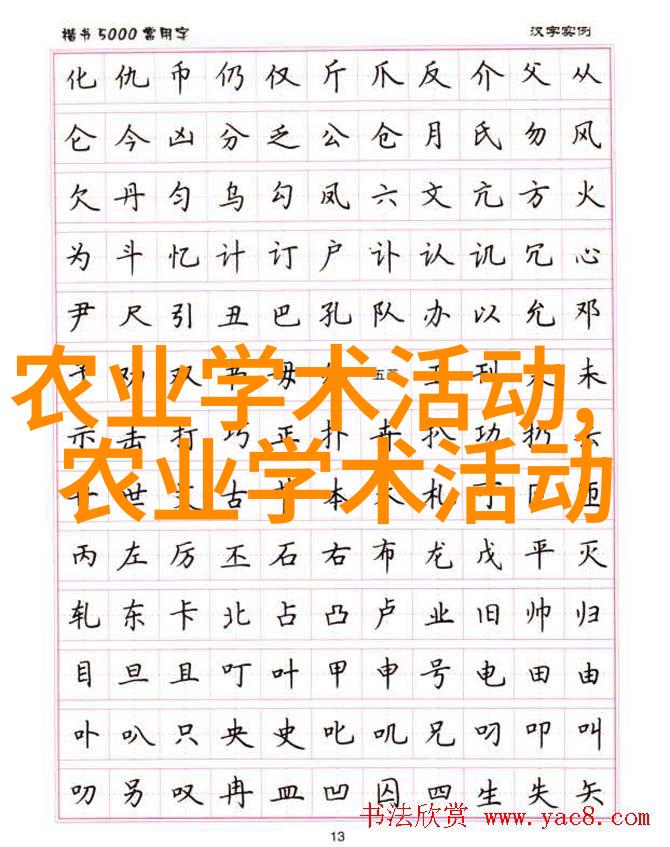 楷书5000常用字 汉字实例
化仇币仍仅斤爪反介父从
仑今凶分乏公仓月氏勿风
欠丹匀乌勾凤六文亢方火
为斗忆计订户讣认讥冗心
尹尺引丑巴孔队办以允邓
双 五画 刊 未
农业学术活动,
示击打巧正扑卉扒功扔去
农业学术活动
世 古 本 札
丙左厉丕石右布龙戊平灭
轧东卡北占凸卢业旧帅归
目旦且叮叶甲申号电田由
卟叭只央史叱叽兄叼叩叫
叨另叹冉皿凹囚四生失矢
书法欣赏 www.yac8.com
13